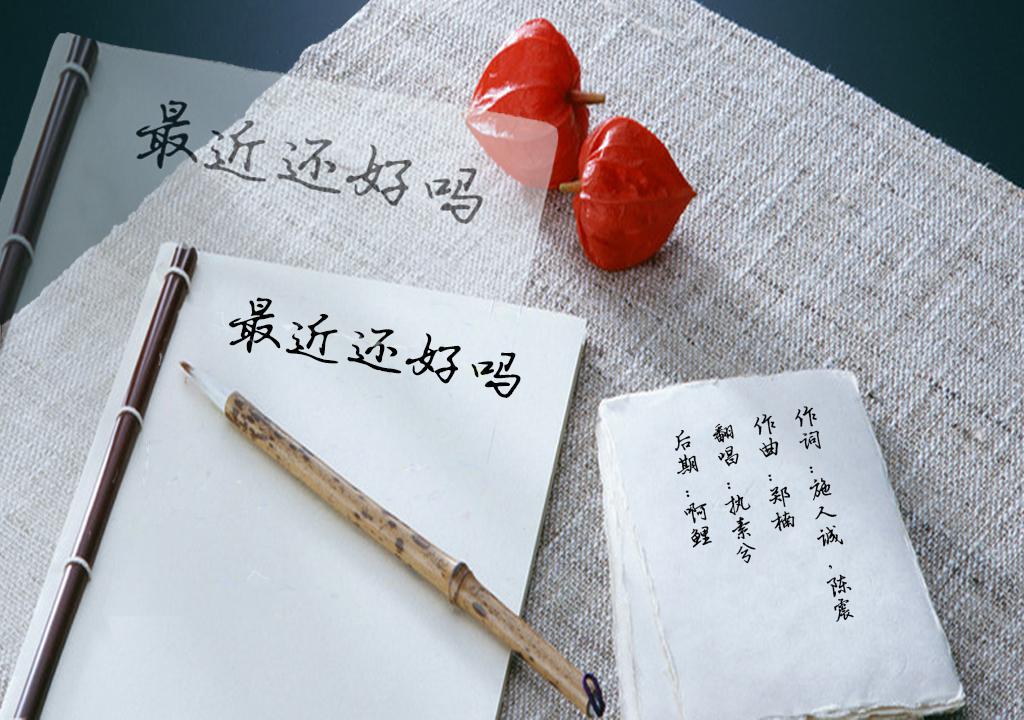 最近还好吗
最近还好吗
作词：施人诚，陈震
作曲：郑楠
翻唱：执素兮
后期：啊鲤